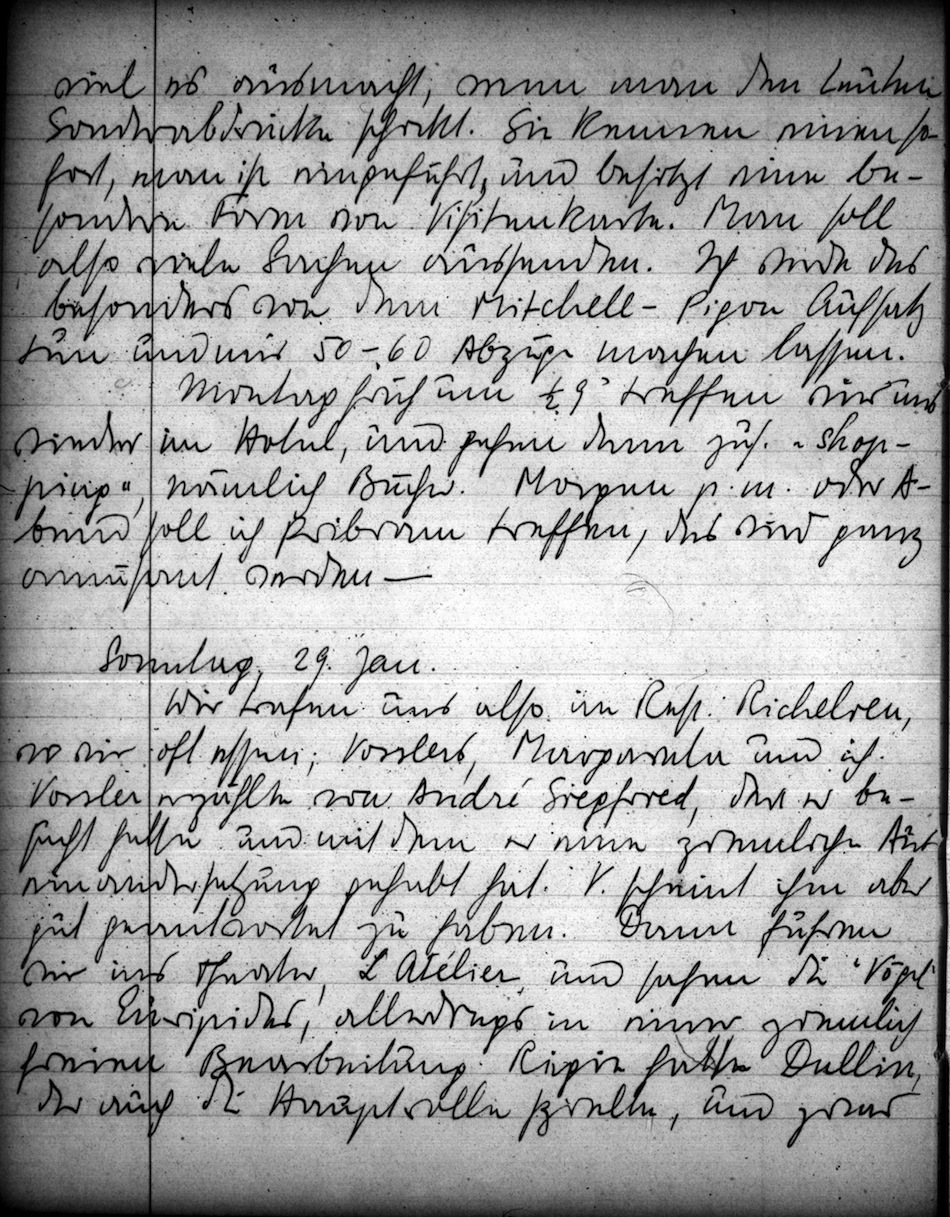 viel es ausmacht, wenn man den Leuten
Sonderabdrucke schickt. Sie kennen einen so-
fort, man ist eingeführt, und besitzt eine be-
sondere Form von Visitenkarte. Man soll
also viele Sachen aussenden. Ich werde das
besonders von dem Mitchell-Pigou Aufsatz
tun und mir 50-60 Abzüge machen lassen.
Montag früh um ½ 9 treffen wir uns
wieder im Hotel, und gehen dann zus. "shop-
ping", nämlich Bücher. Morgen p.m. oder A-
bend soll ich Pribram treffen, das wird ganz
amüsant werden —
Sonntag, 29. Jan.
Wir trafen uns also im Rest. Richelieu,
wo wir oft essen; Vosslers, Margarete und ich.
Vossler erzählte von André Siegfried, den er be-
sucht hatte und mit dem er eine ziemliche Aus
einandersetzung gehabt hat. V. scheint ihm aber
gut geantwortet zu haben. Dann fuhren
wir ins Theater, L'Atélier, und sahen die "Vögel"
von Euripides, allerdings in einer ziemlich
freien Bearbeitung. Regie hatte Dullin,
der auch die Hauptrolle spielte, und zwar